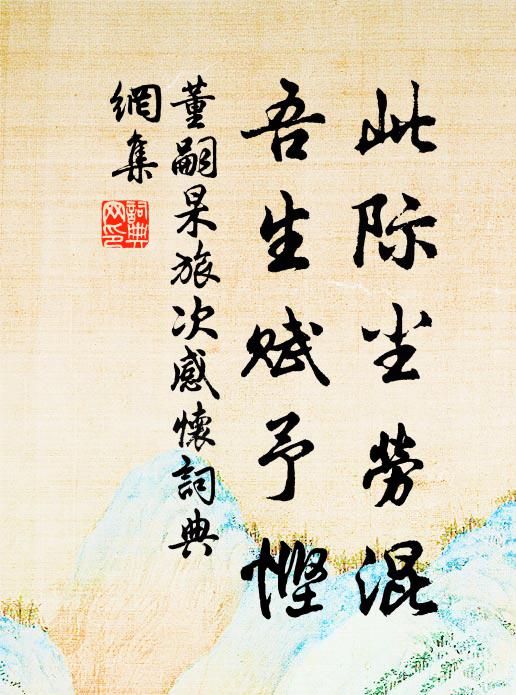 此际尘劳混
吾生赋予悭
董嗣杲旅次感怀詞典
網集
詞典
网印